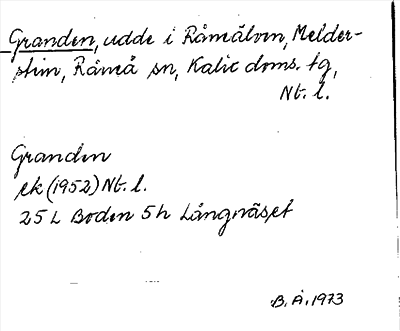 Granden, udde i Råneälven, Melder-
stein, Råneå sn, Kalix doms. tg,
Nt. l.
Granden
ek (1952) Nt. l.
25 L Boden 5h Långnäset
B. Å. 1973